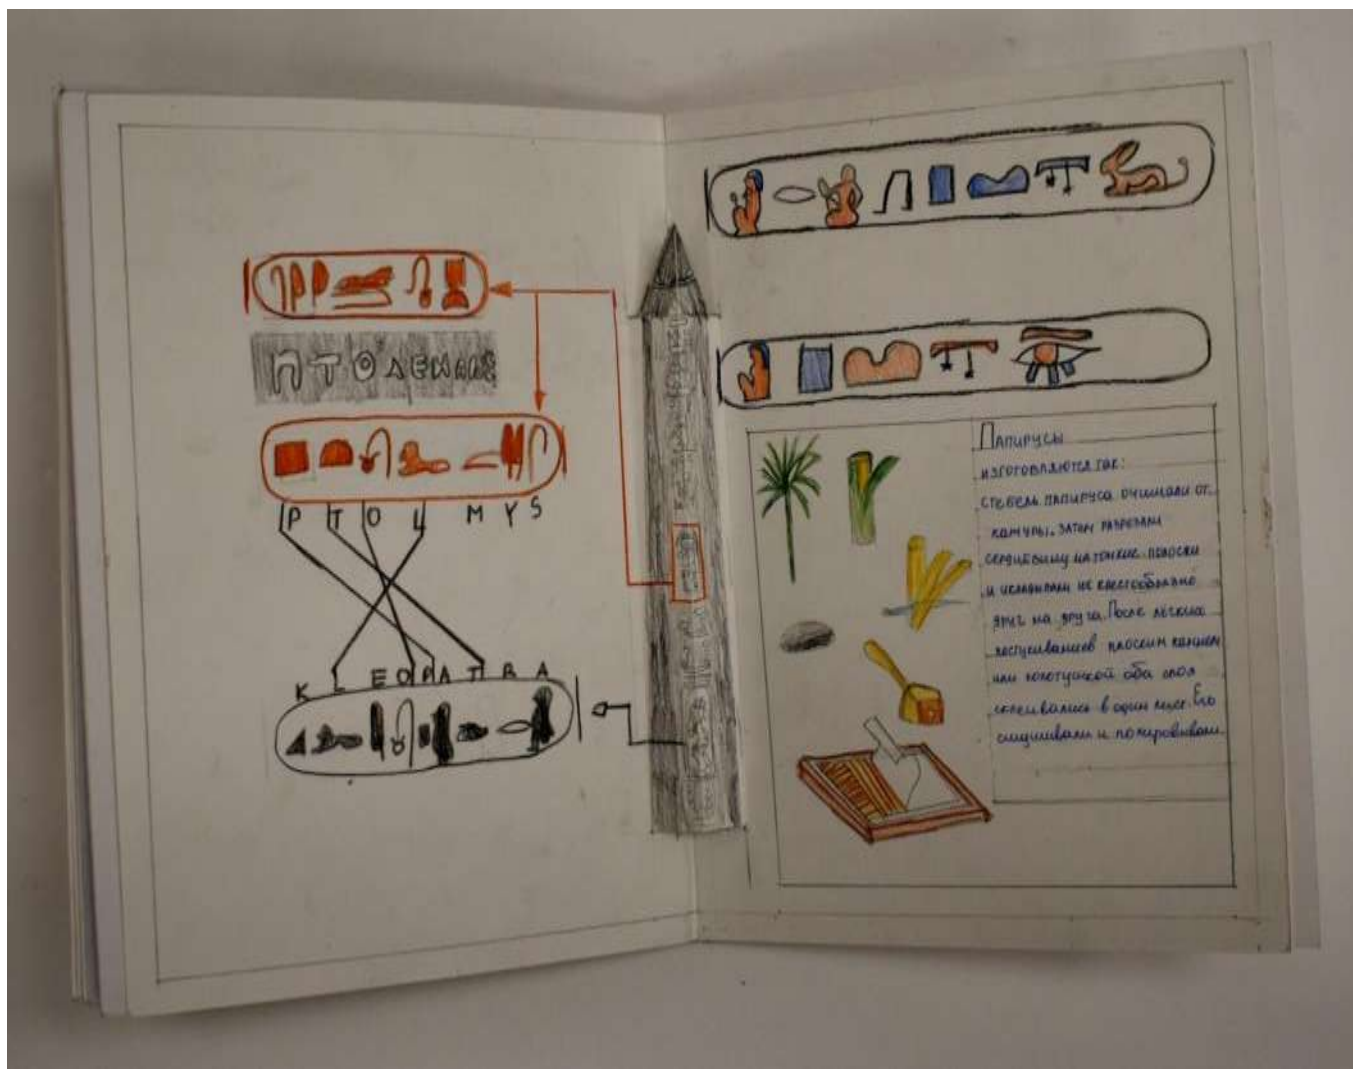 ПТОЛЕМАИС
P T O L M Y S
K L E O P A T R A
Папирусы
изготовляются так:
стебель папируса очищали от
кожуры. Затем разрезали
сердцевину на тонкие полоски
и укладывали их крестообразно
друг на друга. После лёгких
постукиваний плоским камнем
или колотушкой оба слоя
склеивались в один лист. Его
сглаживали и полировали.